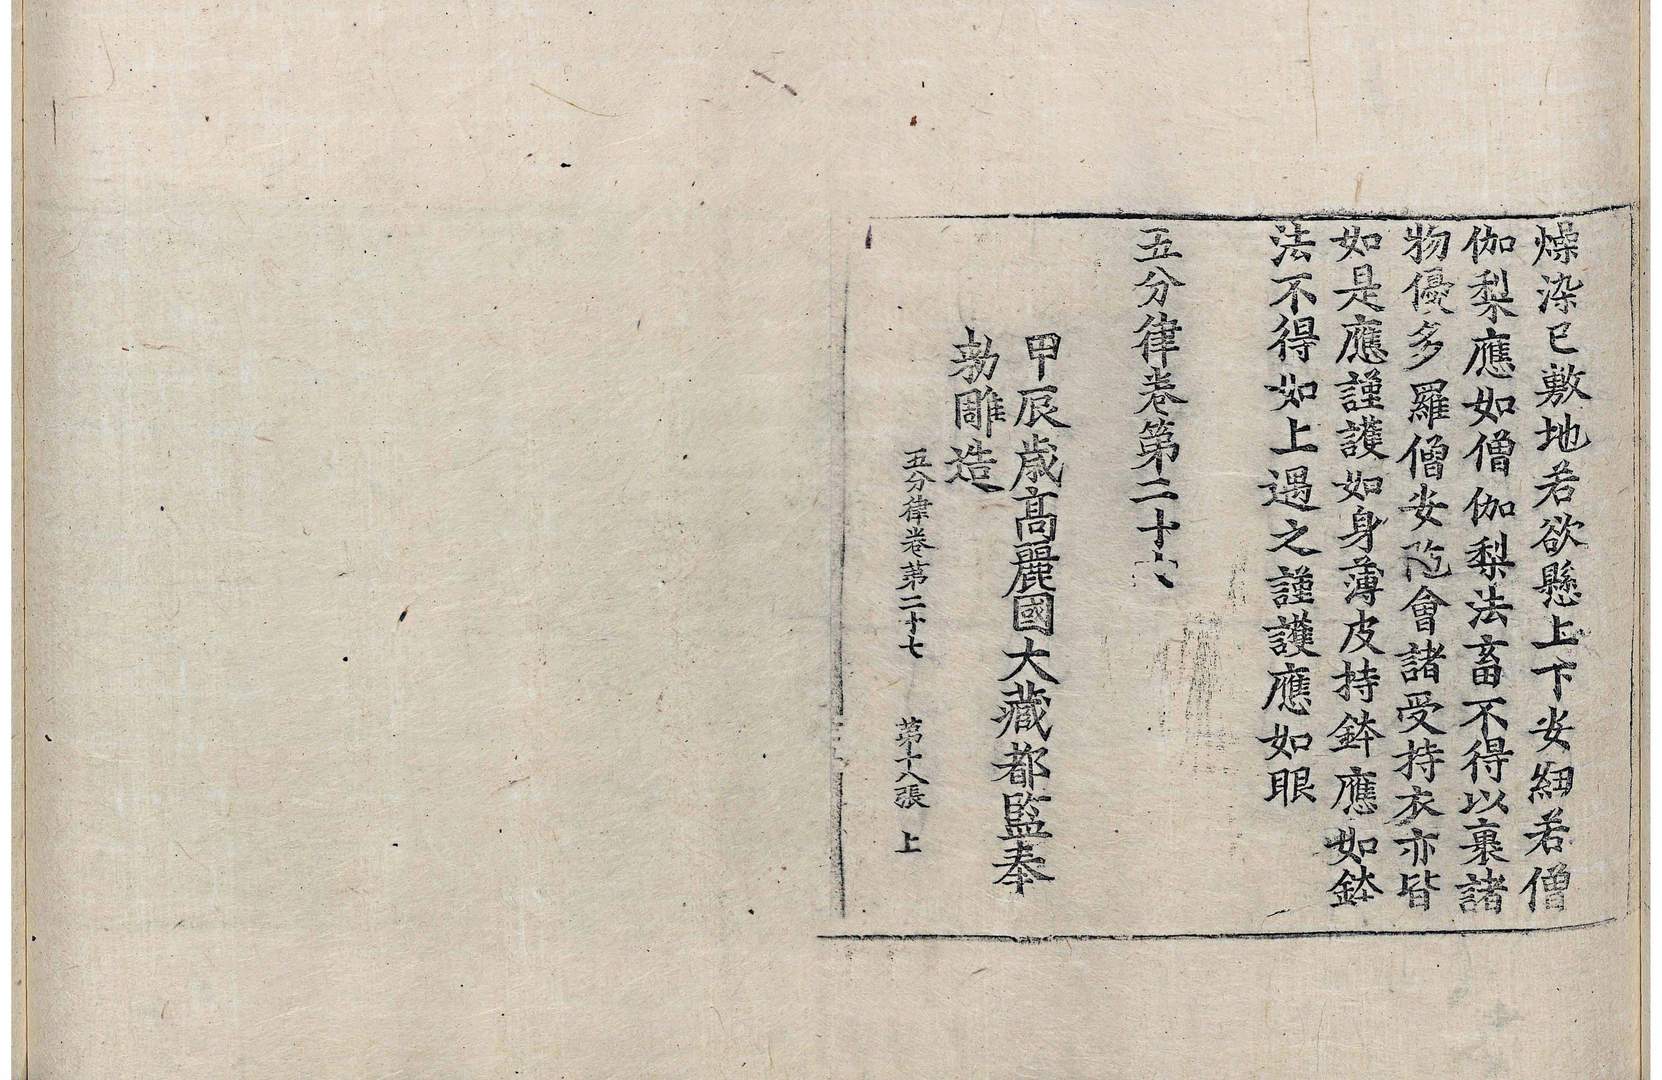 燥染已敷地若欲懸上下安紐若僧
伽梨應如僧伽梨法畜不得以裹諸
物優多羅僧安陁會諸受持衣亦皆
如是應謹護如身薄皮持鉢應如鉢
法不得如上遇之謹護應如眼
五分律卷第二十六
甲辰歳高麗國大藏都監奉
勑雕造
五分律卷第二十七 第十八張 上